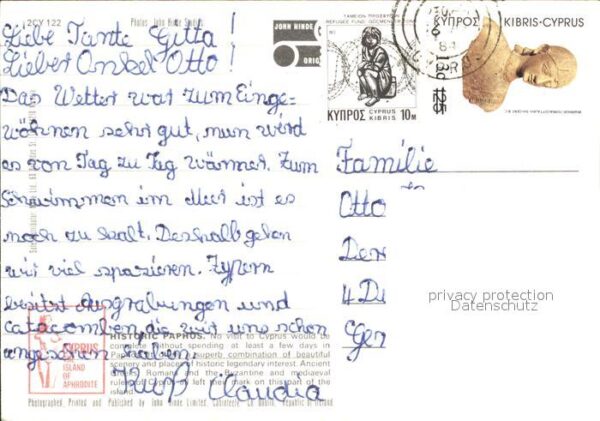 2CY 122
Photos John Hinde Studios
Liebe Tante Gitta!
Lieber Onkel Otto!
Das Wetter war zum Einge-
wöhnen sehr gut, nun wird
es von Tag zu Tag wärmer. Zum
Schwimmen im Meer ist es
noch zu kalt. Deshalb gehen
wir viel spazieren. Zypern
besitzt Ausgrabungen und
Catacomben die wir uns schon
angesehen haben.
Gruß Claudia
JOHN HINDE
ORIG
REFUGEE FUND
ΚΥΠΡΟΣ CYPRUS KIBRIS 10M
ΚΥΠΡΟΣ KIBRIS·CYPRUS
125
Familie
Otto
4 D
privacy protection
Datenschutz
CYPRUS
ISLAND
OF
APHRODITE
HISTORIC PAPHOS. No visit to Cyprus would be
complete without spending at least a few days in
superb combination of beautiful
scenery and places of historic legendary interest. Ancient
Romans and the Byzantine and mediaeval
rulers of Cyprus all left their mark on this part of the
island.
Photographed, Printed and Published by John Hinde Limited, Cabinteely, Co. Dublin, Republic of Ireland